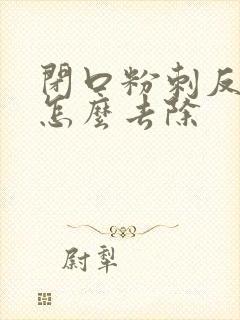 閉口粉刺反
怎麼去除
尉犁